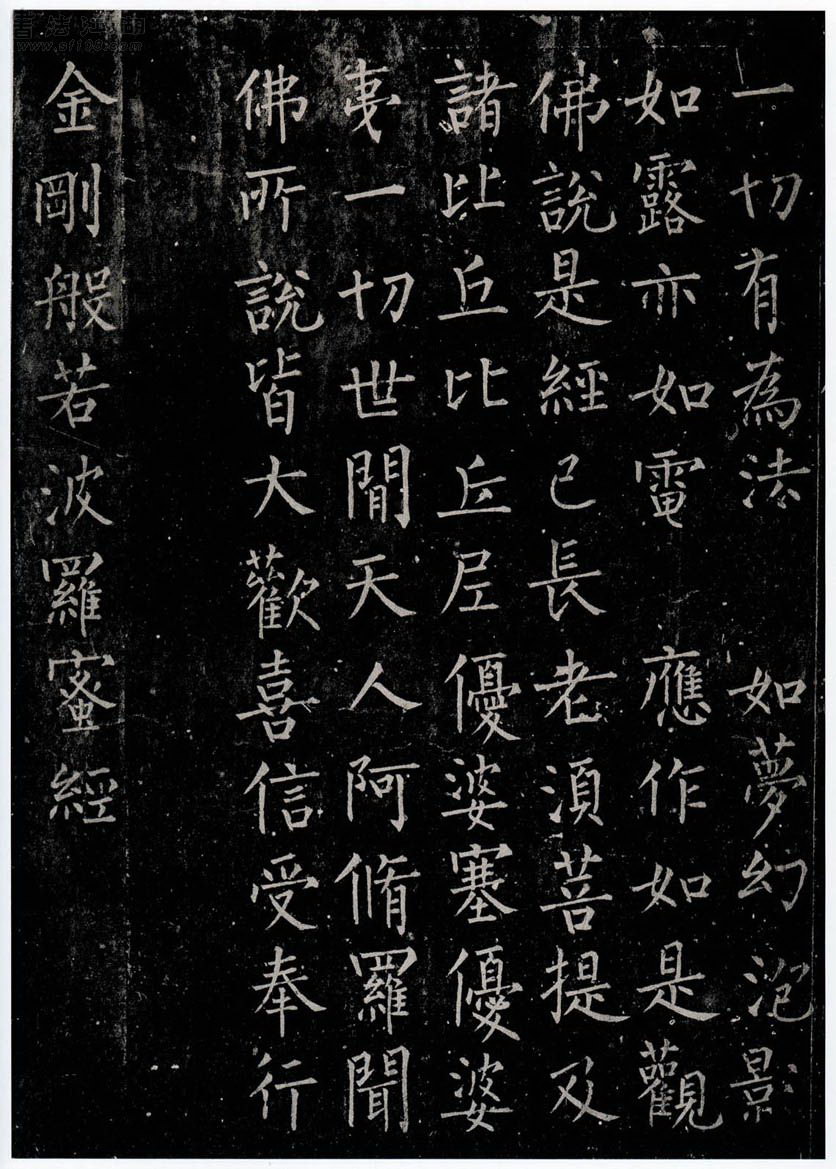 一切有為法 如夢幻泡影
如露亦如電 應作如是觀
佛說是經已長老須菩提及
諸比丘比丘尼優婆塞優婆
夷一切世間天人阿脩羅聞
佛所說皆大歡喜信受奉行
金剛般若波羅蜜經
书法江湖
www.sf108.com